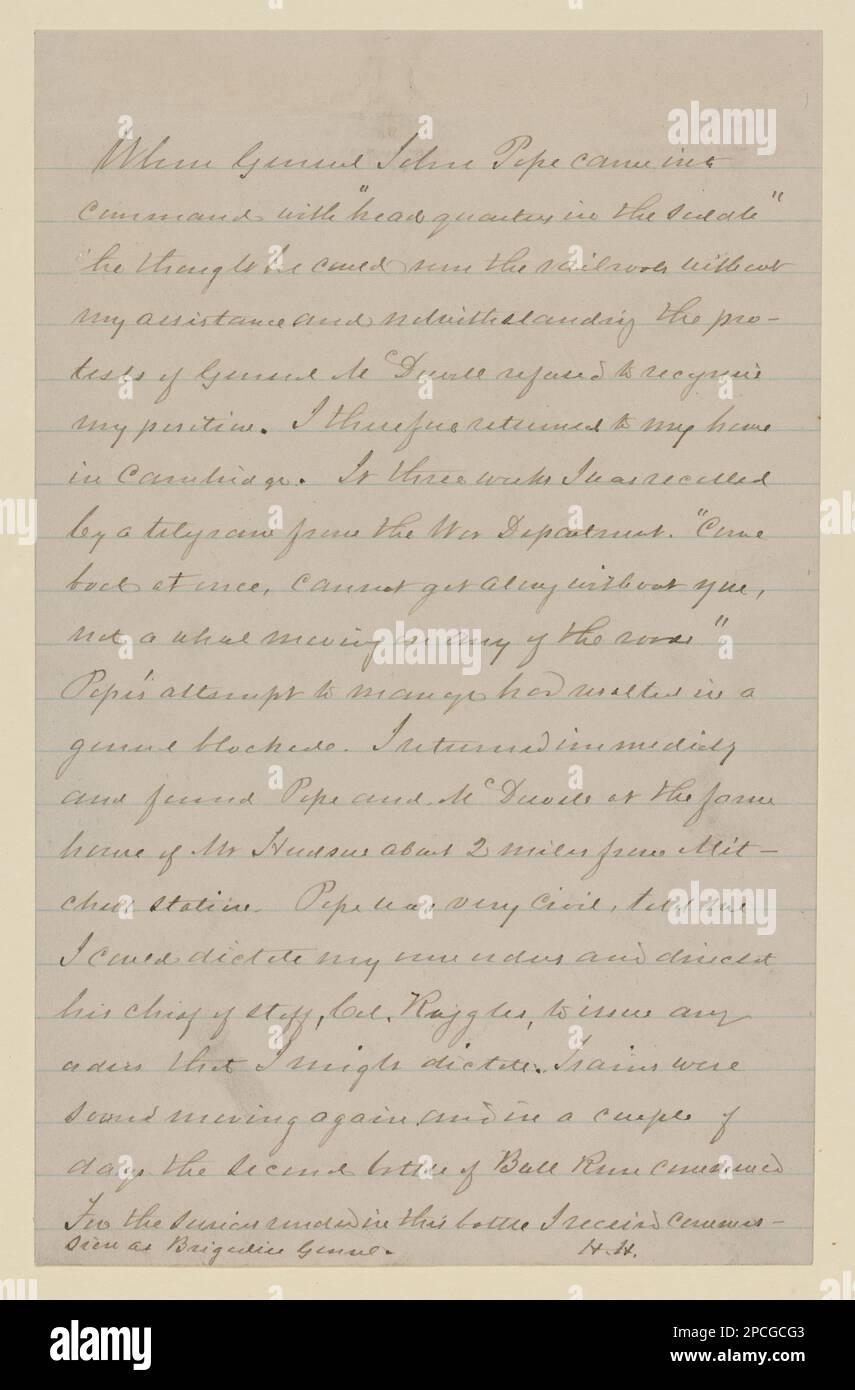 When General John Pope came into
command with "head quarters in the saddle"
he thought he could run the railroads without
my assistance and notwithstanding the pro-
tests of General McDowell refused to recognize
my position. I therefore returned to my home
in Cambridge. In three weeks I was recalled
by a telegram from the War Department. "Come
back at once, cannot get along without you,
not a wheel moving on any of the roads"
Pope's attempt to manage had resulted in a
general blockade. I returned immediately
and found Pope and McDowell at the farm
house of Mr Hudson about 2 miles from Mit-
chell station. Pope was very civil, told me
I could dictate my own orders and directed
his chief of staff, Col. Ruggles, to issue any
orders that I might dictate. Trains were
soon moving again and in a couple of
days the second battle of Bull Run commenced
For the services rendered in this battle I received commis-
sion as Brigadier General. H.H.
alamy
Image ID: 2PCGCG3
www.alamy.com